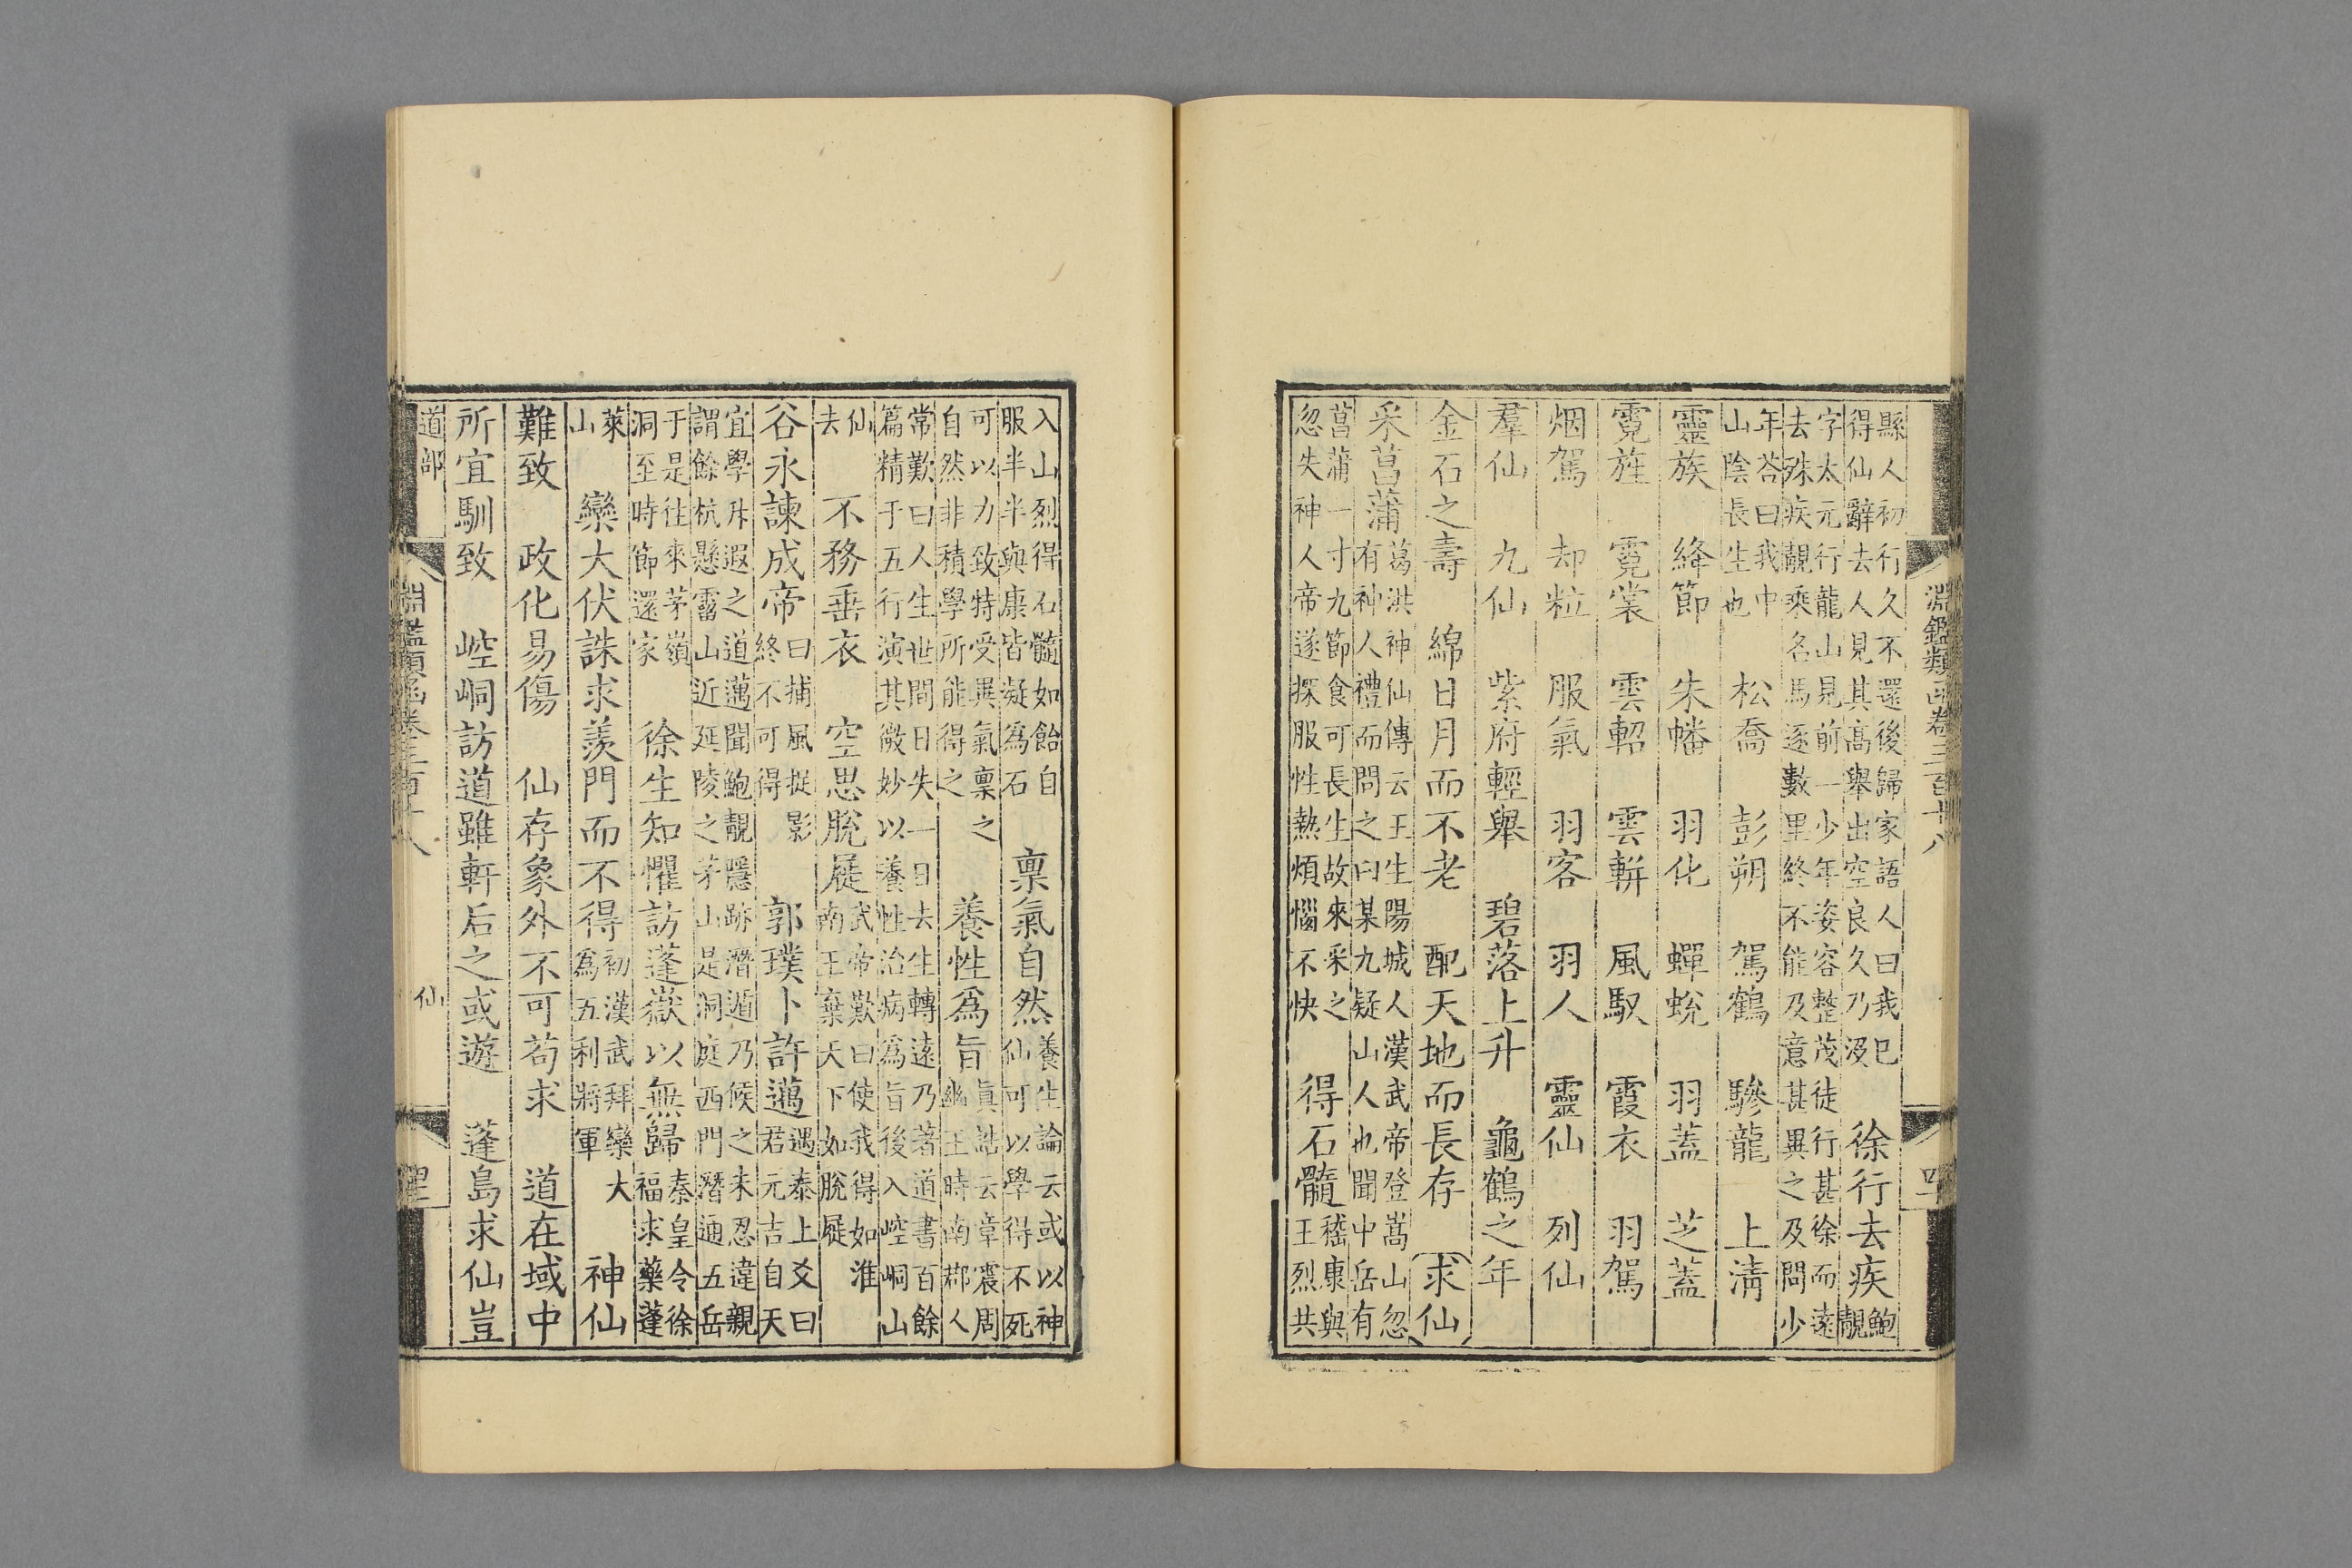 淵鑑類函卷三百十八
縣人初行久不還後歸家語人曰我巳
得仙辭去人見其高舉出空良久乃沒
徐行去疾
鮑
靚
字太元行龍山見前一少年姿容整茂徒行甚徐而遠
去殊疾靚乘名馬逐數里終不能及意甚異之及問少
年荅曰我中
山陰長生也
松喬　彭朔　駕鶴　驂龍　上淸
靈族　絳節　朱幡　羽化　蟬蛻　羽蓋　芝蓋
霓旌　霓裳　雲軺　雲軿　風馭　霞衣　羽駕
烟駕　却粒　服氣　羽客　羽人　靈仙　列仙
羣仙　九仙　紫府輕舉　碧落上升　龜鶴之年
金石之壽　綿日月而不老　配天地而長存　求仙
采菖蒲
葛洪神仙傳云王生陽城人漢武帝登嵩山忽
有神人禮而問之曰某九疑山人也聞中岳有
菖蒲一寸九節食可長生故來采之
忽失神人帝遂採服性熱煩惱不快
得石髓
嵇康與
王烈共
入山烈得石髓如飴自
服半半與康皆凝為石
稟氣自然
養生論云或以神
仙可以學得不死
可以力致特受異氣稟之
自然非積學所能得之
養性爲旨
眞誥云章震周
幽王時南郡人
常歎曰人生世間日失一日去生轉遠乃著道書百餘
篇精于五行演其微妙以養性治病爲旨後入崆峒山
仙
去
不務垂衣　空思脫屣
武帝歎曰使我得如淮
南王棄天下如脫屣
谷永諫成帝
曰捕風捉影
終不可得
郭璞卜許邁
遇泰上爻曰
君元吉自天
宜學升遐之道邁聞鮑靚隱跡潛遁乃候之未忍違親
謂餘杭懸霤山近延陵之茅山是洞庭西門潛通五岳
于是往來茅嶺
洞至時節還家
徐生知懼訪蓬嶽以無歸
秦皇令徐
福求藥蓬
萊
山
欒大伏誅求羨門而不得
初漢武拜欒大
爲五利將軍
神仙
難致　政化易傷　仙存象外不可苟求　道在域中
所宜馴致　崆峒訪道雖軒后之或遊　蓬島求仙豈
道部　仙
淵鑑類函卷三百十八